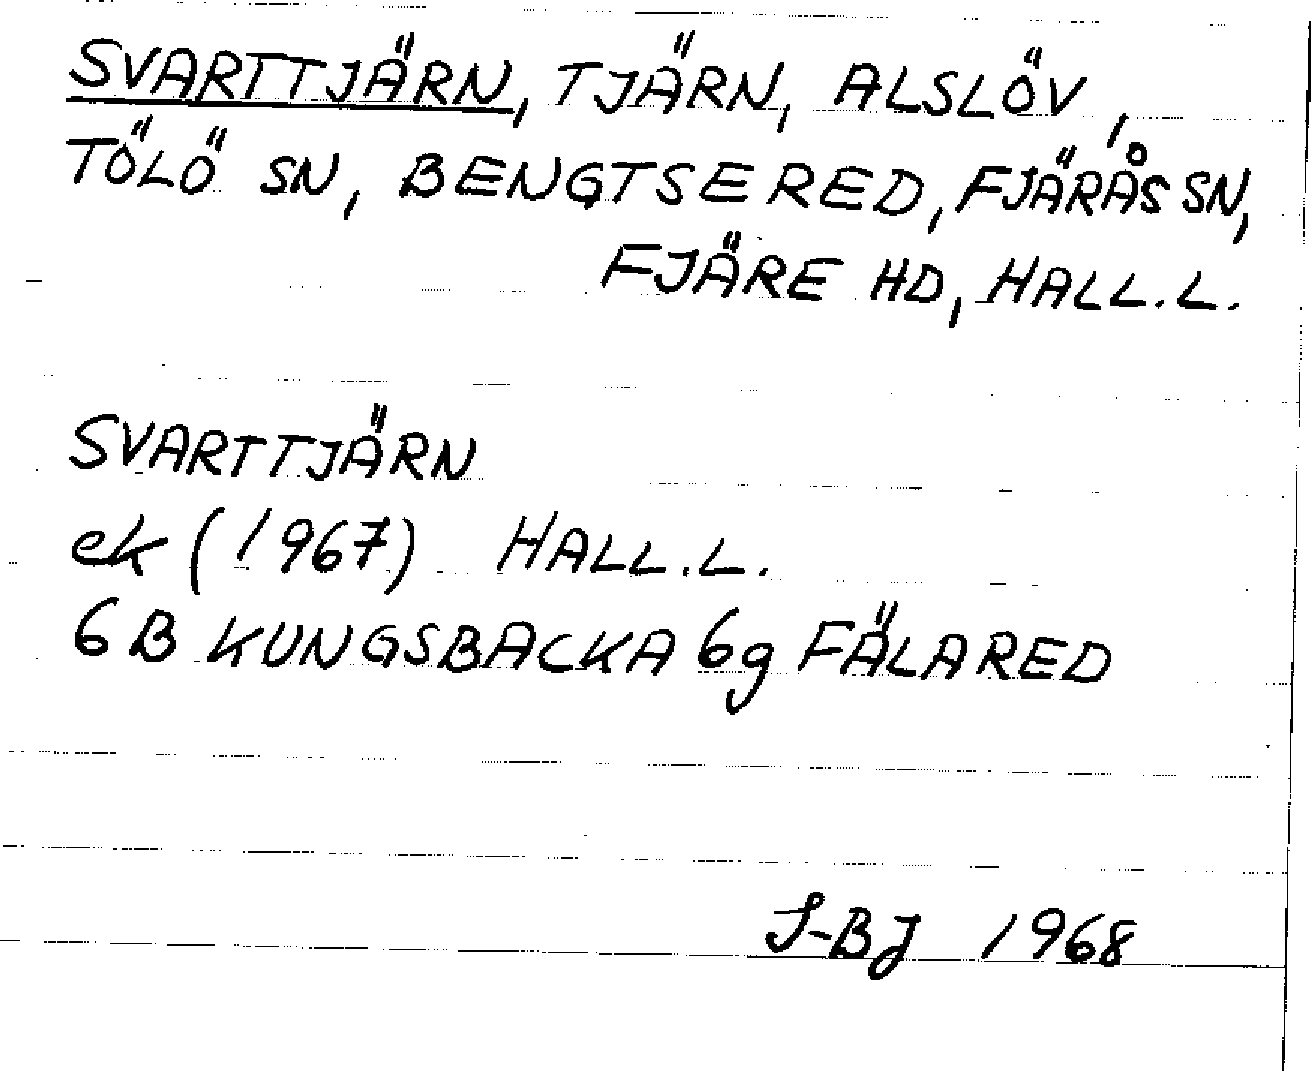 SVARTTJÄRN, TJÄRN, ALSLÖV,
TÖLÖ SN, BENGTSERED, FJÄRÅS SN,
FJÄRE HD, HALL.L.
SVARTTJÄRN
ek (1967) HALL.L.
6B KUNGSBACKA 6g FÄLARED
S-BJ 1968